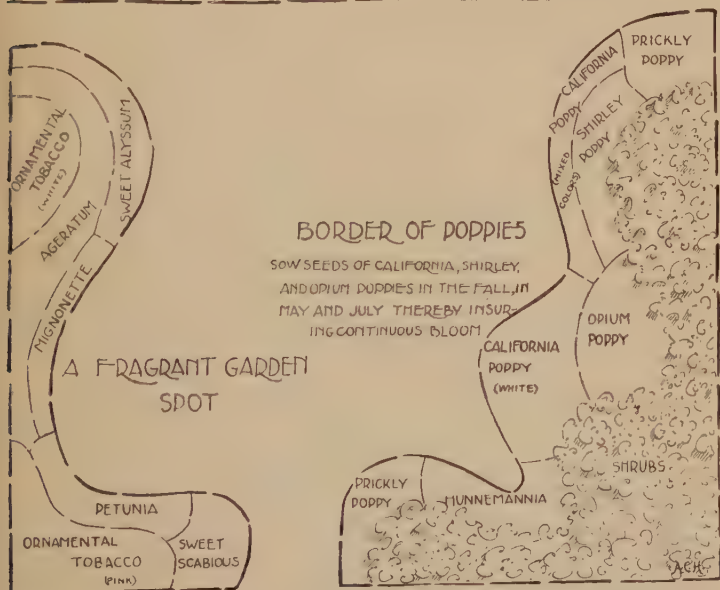 ORNAMENTAL
TOBACCO
(WHITE)
AGERATUM
SWEET ALYSSUM
MIGNONETTE
A FRAGRANT GARDEN
SPOT
PETUNIA
ORNAMENTAL
TOBACCO
(PINK)
SWEET
SCABIOUS
BORDER OF POPPIES
SOW SEEDS OF CALIFORNIA, SHIRLEY,
AND OPIUM POPPIES IN THE FALL, IN
MAY AND JULY THEREBY INSUR-
ING CONTINUOUS BLOOM
CALIFORNIA
POPPY
(MIXED
COLORS)
PRICKLY
POPPY
SHIRLEY
POPPY
OPIUM
POPPY
CALIFORNIA
POPPY
(WHITE)
SHRUBS
PRICKLY
POPPY
HUNNEMANNIA
A.C.H.